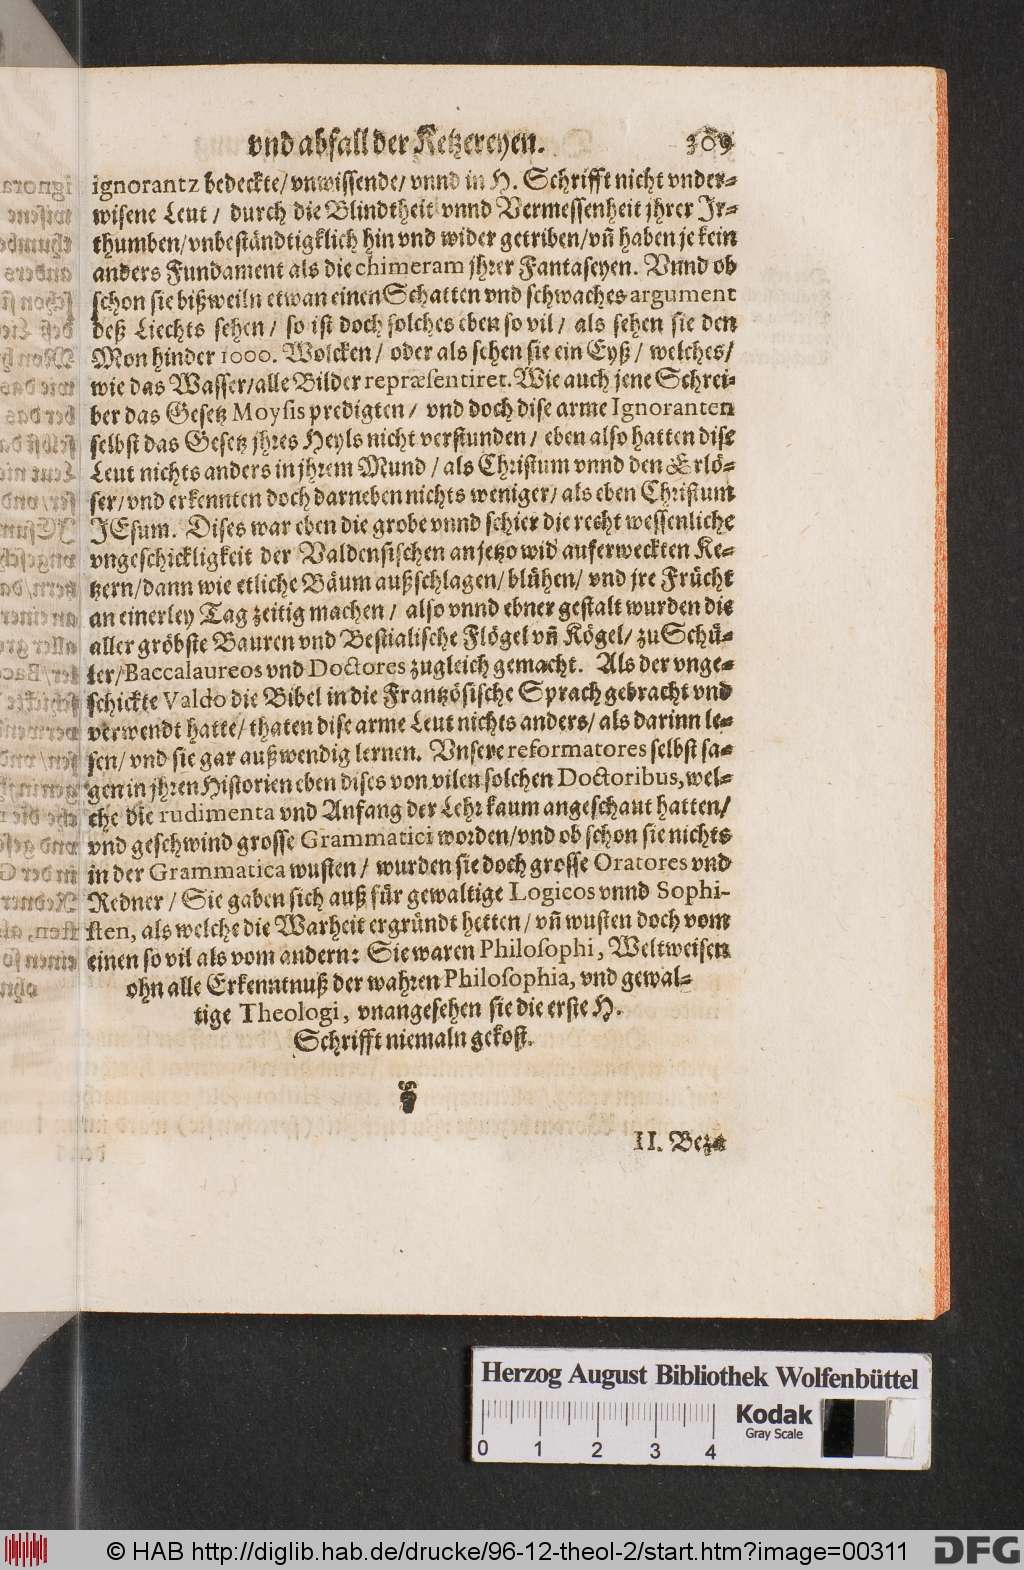 vnd abfall der Ketzereyen. 309
ignorantz bedeckte/ vnwissende/ vnnd in H. Schrifft nicht vnder-
wisene Leut / durch die Blindtheit vnnd Vermessenheit jhrer Ir-
thumben/ vnbeständtigklich hin vnd wider getriben/ vñ haben je kein
anders Fundament als die chimeram jhrer Fantaseyen. Vnnd ob
schon sie bißweiln etwan einen Schatten vnd schwaches argument
deß Liechts sehen / so ist doch solches eben so vil / als sehen sie den
Mon hinder 1000. Wolcken / oder als sehen sie ein Eyß / welches/
wie das Wasser/ alle Bilder repræsentiret. Wie auch jene Schrei-
ber das Gesetz Moysis predigten / vnd doch dise arme Ignoranten
selbst das Gesetz jhres Heyls nicht verstunden / eben also hatten dise
Leut nichts anders in jhrem Mund / als Christum vnnd den Erlö-
ser/ vnd erkennten doch darneben nichts weniger/ als eben Christum
JEsum. Dises war eben die grobe vnnd schier die recht wessenliche
vngeschickligkeit der Valdensischen anjetzo wid' auferweckten Ke-
tzern/ dann wie etliche Bäum außschlagen/ blühen/ vnd jre Frücht
an einerley Tag zeitig machen / also vnnd ebner gestalt wurden die
aller gröbste Bauren vnd Bestialische Flögel vñ Kögel/ zu Schü-
ler/ Baccalaureos vnd Doctores zugleich gemacht. Als der vnge-
schickte Valdo die Bibel in die Frantzösische Sprach gebracht vnd
verwendt hatte/ thaten dise arme Leut nichts anders/ als darinn le-
sen/ vnd sie gar außwendig lernen. Vnsere reformatores selbst sa-
gen in jhren Historien eben dises von vilen solchen Doctoribus, wel-
che die rudimenta vnd Anfang der Lehr kaum angeschaut hatten/
vnd geschwind grosse Grammatici worden/ vnd ob schon sie nichts
in der Grammatica wusten / wurden sie doch grosse Oratores vnd
Redner / Sie gaben sich auß für gewaltige Logicos vnnd Sophi-
sten, als welche die Warheit ergründt hetten / vñ wusten doch vom
einen so vil als vom andern: Sie waren Philosophi, Weltweisen
ohn alle Erkenntnuß der wahren Philosophia, vnd gewal-
tige Theologi, vnangesehen sie die erste H.
Schrifft niemaln gekost.
II. Beza
Herzog August Bibliothek Wolfenbüttel
0 1 2 3 4
Kodak
Gray Scale
© HAB http://diglib.hab.de/drucke/96-12-theol-2/start.htm?image=00311
DFG